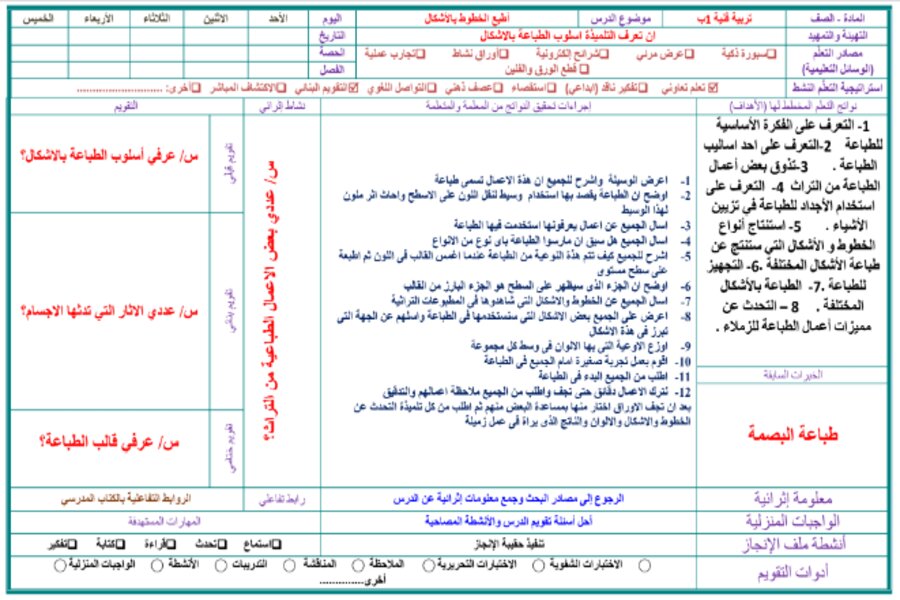 المادة - الصف
تربية فنية 1ب
موضوع الدرس
أطبع الخطوط بالأشكال
اليوم
الأحد
الاثنين
الثلاثاء
الأربعاء
الخميس
التهيئة والتمهيد
ان تعرف التلميذة اسلوب الطباعة بالاشكال
التاريخ
مصادر التعلم
(الوسائل التعليمية)
❑سبورة ذكية ❑عرض مرئي ❑شرائح إلكترونية ❑أوراق نشاط ❑تجارب عملية
❑قطع الورق والفلين
الحصة
الفصل
استراتيجية التعلم النشط
☑تعلم تعاوني ❑تفكير ناقد (ابداعي) ❑استقصاء ❑عصف ذهني ❑التواصل اللغوي ☑التقويم البنائي ❑الاكتشاف المباشر ❑أخرى: ............................
نواتج التعلم المخطط لها (الأهداف)
إجراءات تحقيق النواتج من المعلمة والمتعلمة
نشاط اثرائي
التقويم
1- التعرف على الفكرة الأساسية
للطباعة 2-التعرف على احد اساليب
الطباعة . 3-تذوق بعض أعمال
الطباعة من التراث 4- التعرف على
استخدام الأجداد للطباعة في تزيين
الأشياء . 5- استنتاج أنواع
الخطوط و الأشكال التي ستنتج عن
طباعة الأشكال المختلفة .6- التجهيز
للطباعة .7- الطباعة بالأشكال
المختلفة . 8 – التحدث عن
مميزات أعمال الطباعة للزملاء .
1- اعرض الوسيلة واشرح للجميع ان هذة الاعمال تسمى طباعة
2- اوضح ان الطباعة يقصد بها استخدام وسيط لنقل اللون على الاسطح واحاث اثر ملون
لهذا الوسيط
3- اسال الجميع عن اعمال يعرفونها استخدمت فيها الطباعة
4- اسال الجميع هل سبق ان مارسوا الطباعة باى نوع من الانواع
5- اشرح للجميع كيف تتم هذة النوعية من الطباعة عندما اغمس القالب فى اللون ثم اطبعة
على سطح مستوى
6- اوضح ان الجزء الذى سيظهر على السطح هو الجزء البارز من القالب
7- اسال الجميع عن الخطوط والاشكال التى شاهدوها فى المطبوعات التراثية
8- اعرض على الجميع بعض الاشكال التى سنستخدمها فى الطباعة واسلهم عن الجهة التى
تبرز فى هذة الاشكال
9- اوزع الاوعية التى بها الالوان فى وسط كل مجموعة
10- اقوم بعمل تجربة صغيرة امام الجميع فى الطباعة
11- اطلب من الجميع البدء فى الطباعة
12- نترك الاعمال دقائق حتى تجف واطلب من الجميع ملاحظة اعمالهم والتدقيق
بعد ان تجف الاوراق اختار منها بمساعدة البعض منهم ثم اطلب من كل تلميذة التحدث عن
الخطوط والاشكال والالوان والناتج الذى يراة فى عمل زميلة
س/ عددي بعض الاعمال الطباعية من التراث؟
تقويم قبلي
س/ عرفي أسلوب الطباعة بالاشكال؟
تقويم بنائي
س/ عددي الاثار التي تدثها الاجسام؟
تقويم ختامي
س/ عرفي قالب الطباعة؟
الخبرات السابقة
طباعة البصمة
معلومة إثرائية
الرجوع إلى مصادر البحث وجمع معلومات إثرائية عن الدرس
رابط تفاعلي
الروابط التفاعلية بالكتاب المدرسي
الواجبات المنزلية
أحل أسئلة تقويم الدرس والأنشطة المصاحبة
المهارات المستهدفة
أنشطة ملف الإنجاز
تنفيذ حقيبة الإنجاز
❑استماع ❑تحدث ❑قراءة ❑كتابة ❑تفكير
أدوات التقويم
○ الاختبارات الشفوية ○ الاختبارات التحريرية ○ الملاحظة ○ المناقشة ○ التدريبات ○ الأنشطة ○ الواجبات المنزلية ○
أخرى...............